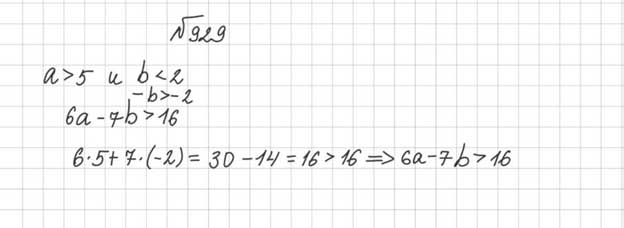 №929
a>5 и b<2
-b>-2
6a-7b>16
6·5+7·(-2)=30-14=16>16=>6a-7b>16